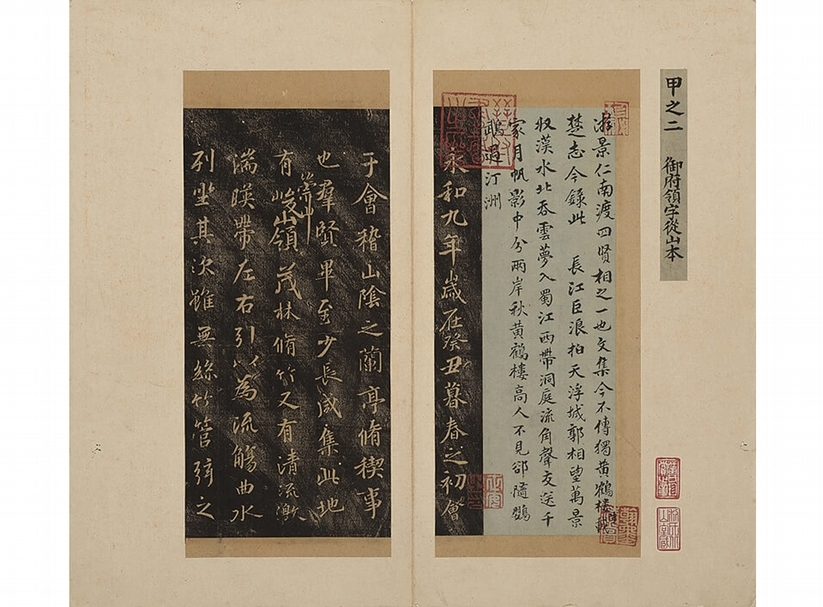 甲之二　御府領字從山本
游景仁南渡四賢相之一也文集今不傳獨黃鶴樓
楚志今錄此　長江巨浪拍天浮城郭相望萬景
收漢水北吞雲夢入蜀江西帶洞庭流角聲交送千
家月帆影中分兩岸秋黃鶴樓高人不見卻隨鸚
鵡過汀洲
永和九年歲在癸丑暮春之初會
于會稽山陰之蘭亭脩稧事
也羣賢畢至少長咸集此地
有崇山峻領茂林脩竹又有清流激
湍暎帶左右引以為流觴曲水
列坐其次雖無絲竹管弦之